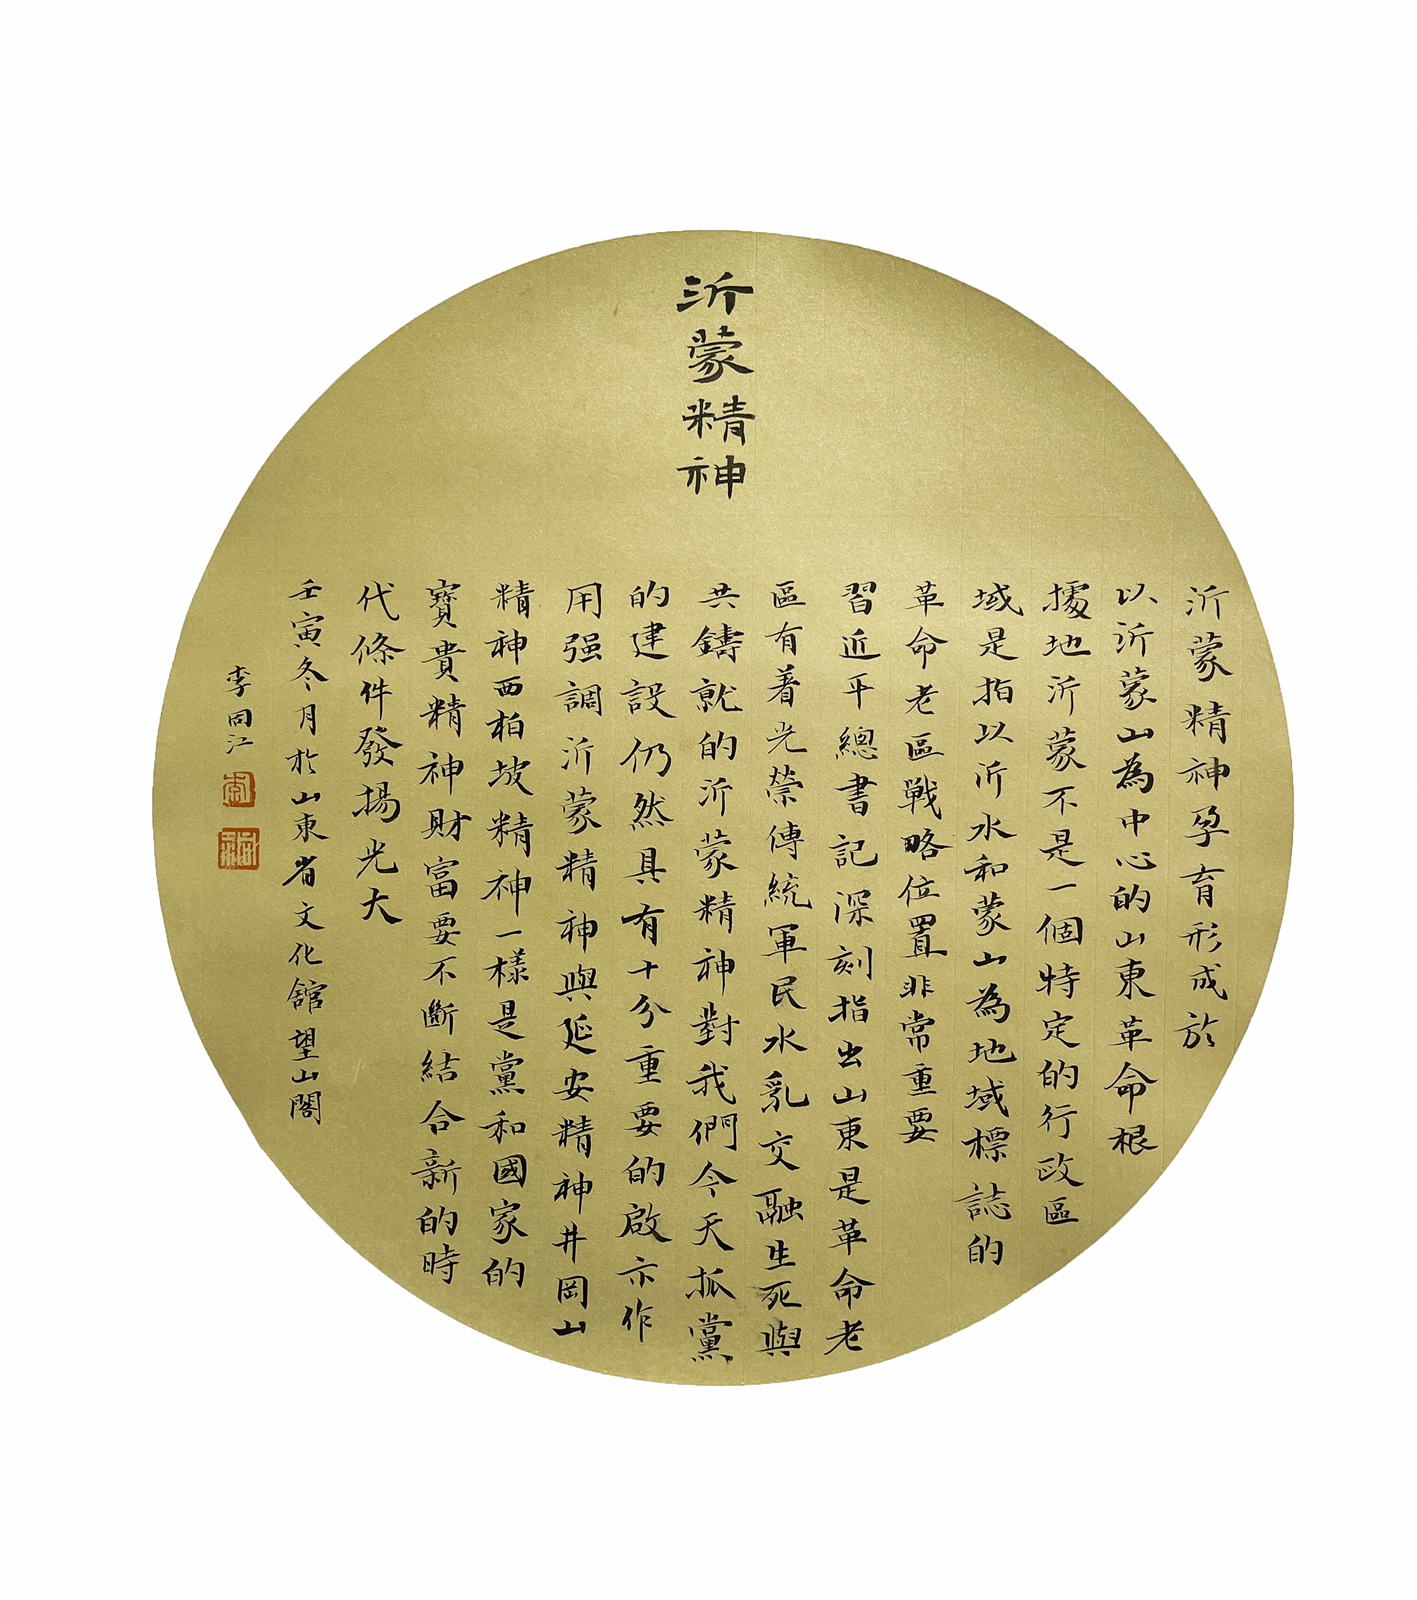 沂蒙精神
沂蒙精神孕育形成於
以沂蒙山為中心的山東革命根
據地沂蒙不是一個特定的行政區
域是指以沂水和蒙山為地域標誌的
革命老區戰略位置非常重要
習近平總書記深刻指出山東是革命老
區有着光榮傳統軍民水乳交融生死與
共鑄就的沂蒙精神對我們今天抓黨
的建設仍然具有十分重要的啟示作
用强調沂蒙精神與延安精神井岡山
精神西柏坡精神一樣是黨和國家的
寶貴精神財富要不斷結合新的時
代條件發揚光大
壬寅冬月於山東省文化舘望山閣
李同江